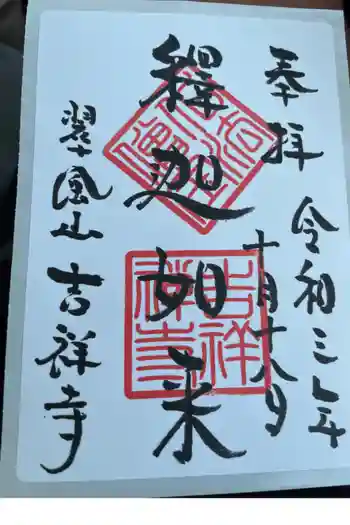 奉拝
令和三年
十月十八日
釋迦如来
翠風山
吉祥寺
吉祥
禅寺